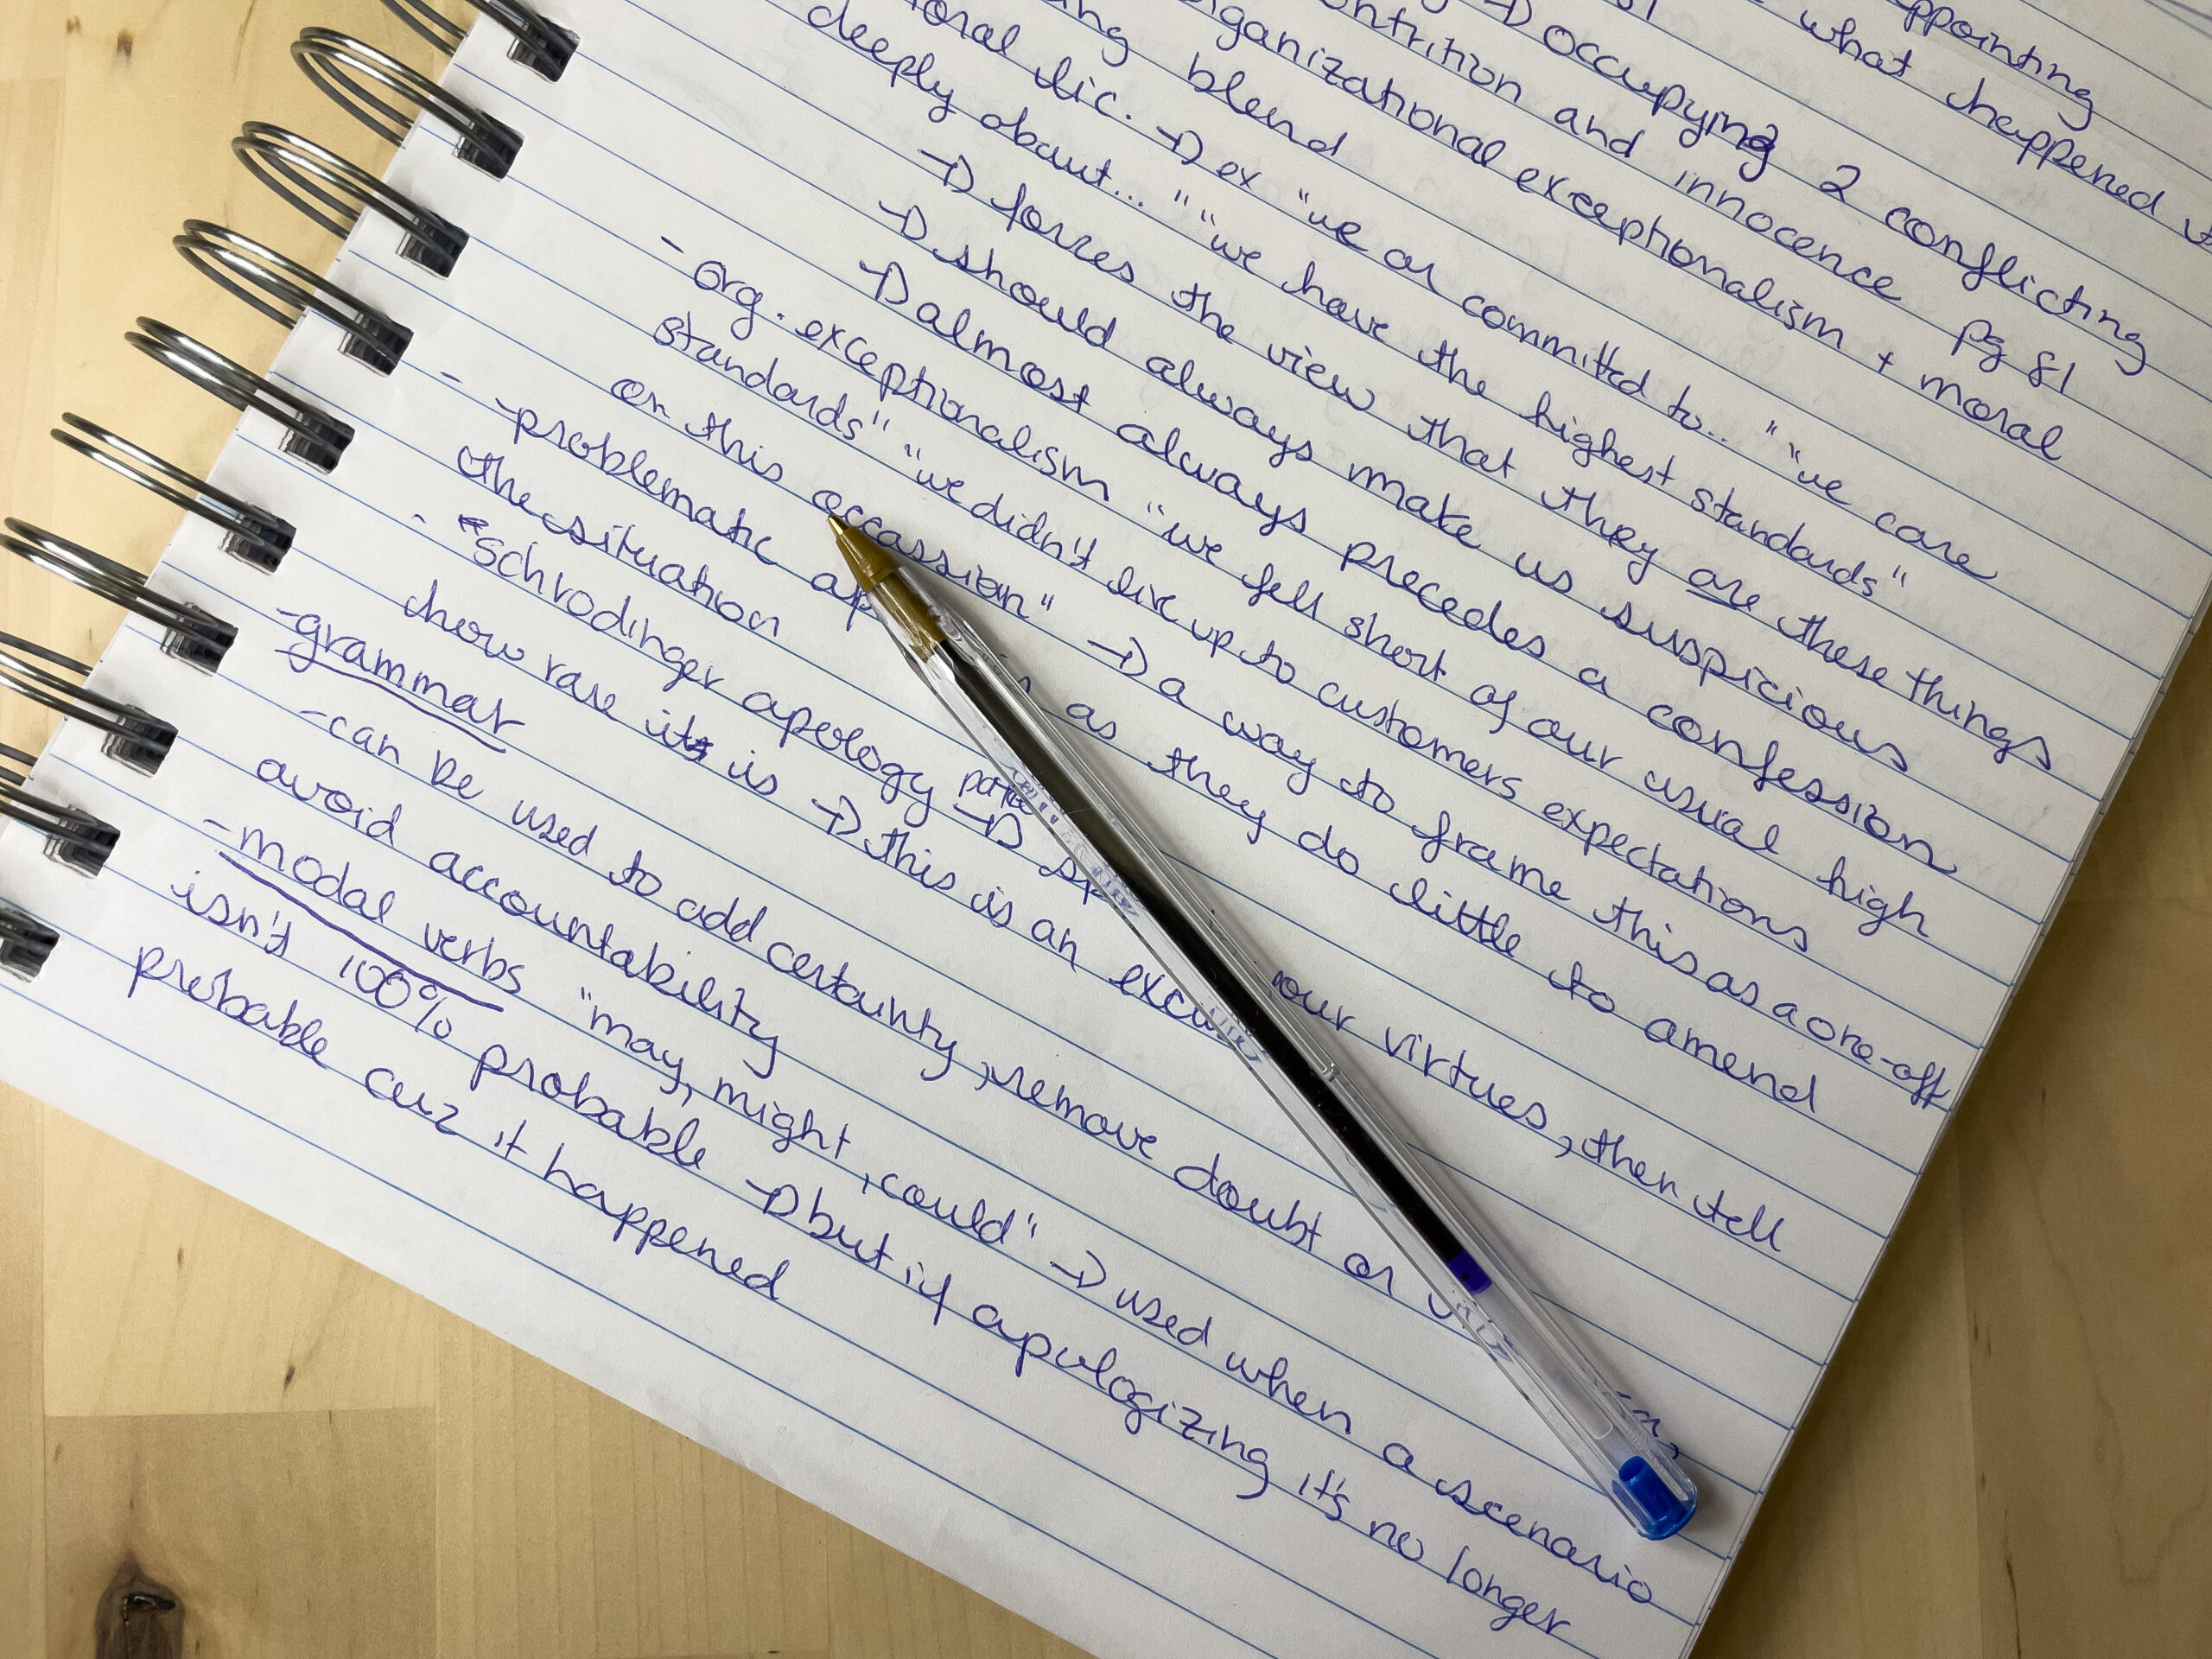 ppointing
what happened
→ occupying 2 conflicting
and innocence pg 81
organizational exceptionalism + moral
blend
lic. → ex "we are committed to..." "we care
deeply about..." "we have the highest standards"
→ forces the view that they are these things
→ should always make us suspicious
→ almost always precedes a confession
- org. exceptionalism "we fell short of our usual high
standards" "we didn't live up to customers expectations
on this occassion" → a way to frame this as a one-off
- problematic as they do little to amend
the situation
- schrodinger apology → our virtues, then tell
how rare it is → this is an
- grammar
- can be used to add certainty, remove doubt or
avoid accountability
- modal verbs "may, might, could" → used when a scenario
isn't 100% probable → but if apologizing it's no longer
probable cuz it happened